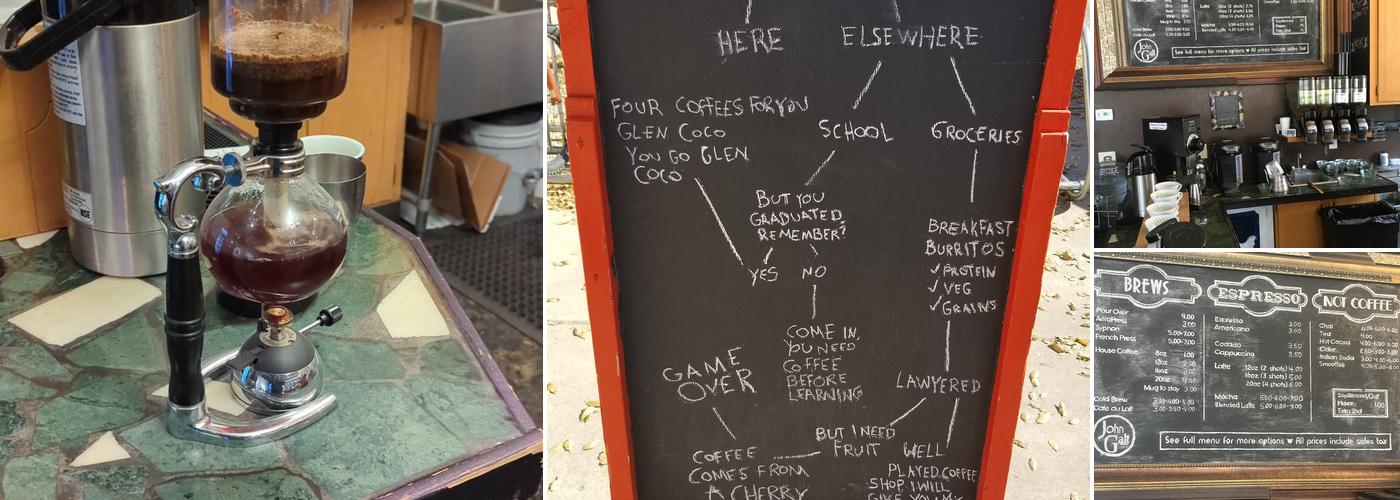 HERE
ELSEWHERE
FOUR COFFEES FOR YOU
GLEN COCO
YOU GO GLEN
COCO
SCHOOL
GROCERIES
BUT YOU
GRADUATED,
REMEMBER?
YES
NO
BREAKFAST
BURRITOS
✓ PROTEIN
✓ VEG
✓ GRAINS
COME IN,
YOU NEED
COFFEE
BEFORE
LEARNING
GAME
OVER
LAWYERED
BUT I NEED
FRUIT
WELL
COFFEE
COMES FROM
A CHERRY
PLAYED, COFFEE
SHOP. I WILL
GIVE YOU MY
John
Galt
See full menu for more options ♥ All prices include sales tax
BREWS
Pour Over 4.00
AeroPress 3.00
Syphon 5.00-7.00
French Press 5.00-7.00
House Coffee 8oz 1.00
12oz 2.00
16oz 3.00
20oz
Mug to stay 3.00
Cold Brew 3.00-4.00-5.00
Cafe au Lait 3.00-3.50-4.00
ESPRESSO
Espresso 3.00
Americano 3.00
Cortado 3.50
Cappuccino 3.50
Latte 12oz (2 shots) 4.00
16oz (3 shots) 5.00
20oz (4 shots) 6.00
Mocha 5.00-6.00-7.00
Blended Latte 5.00-6.00-7.00
NOT COFFEE
Chai
Tea
Hot Cocoa
Cider
Italian Soda
Smoothie
Flavor
Extra Shot
John
Galt
See full menu for more options ♥ All prices include sales tax